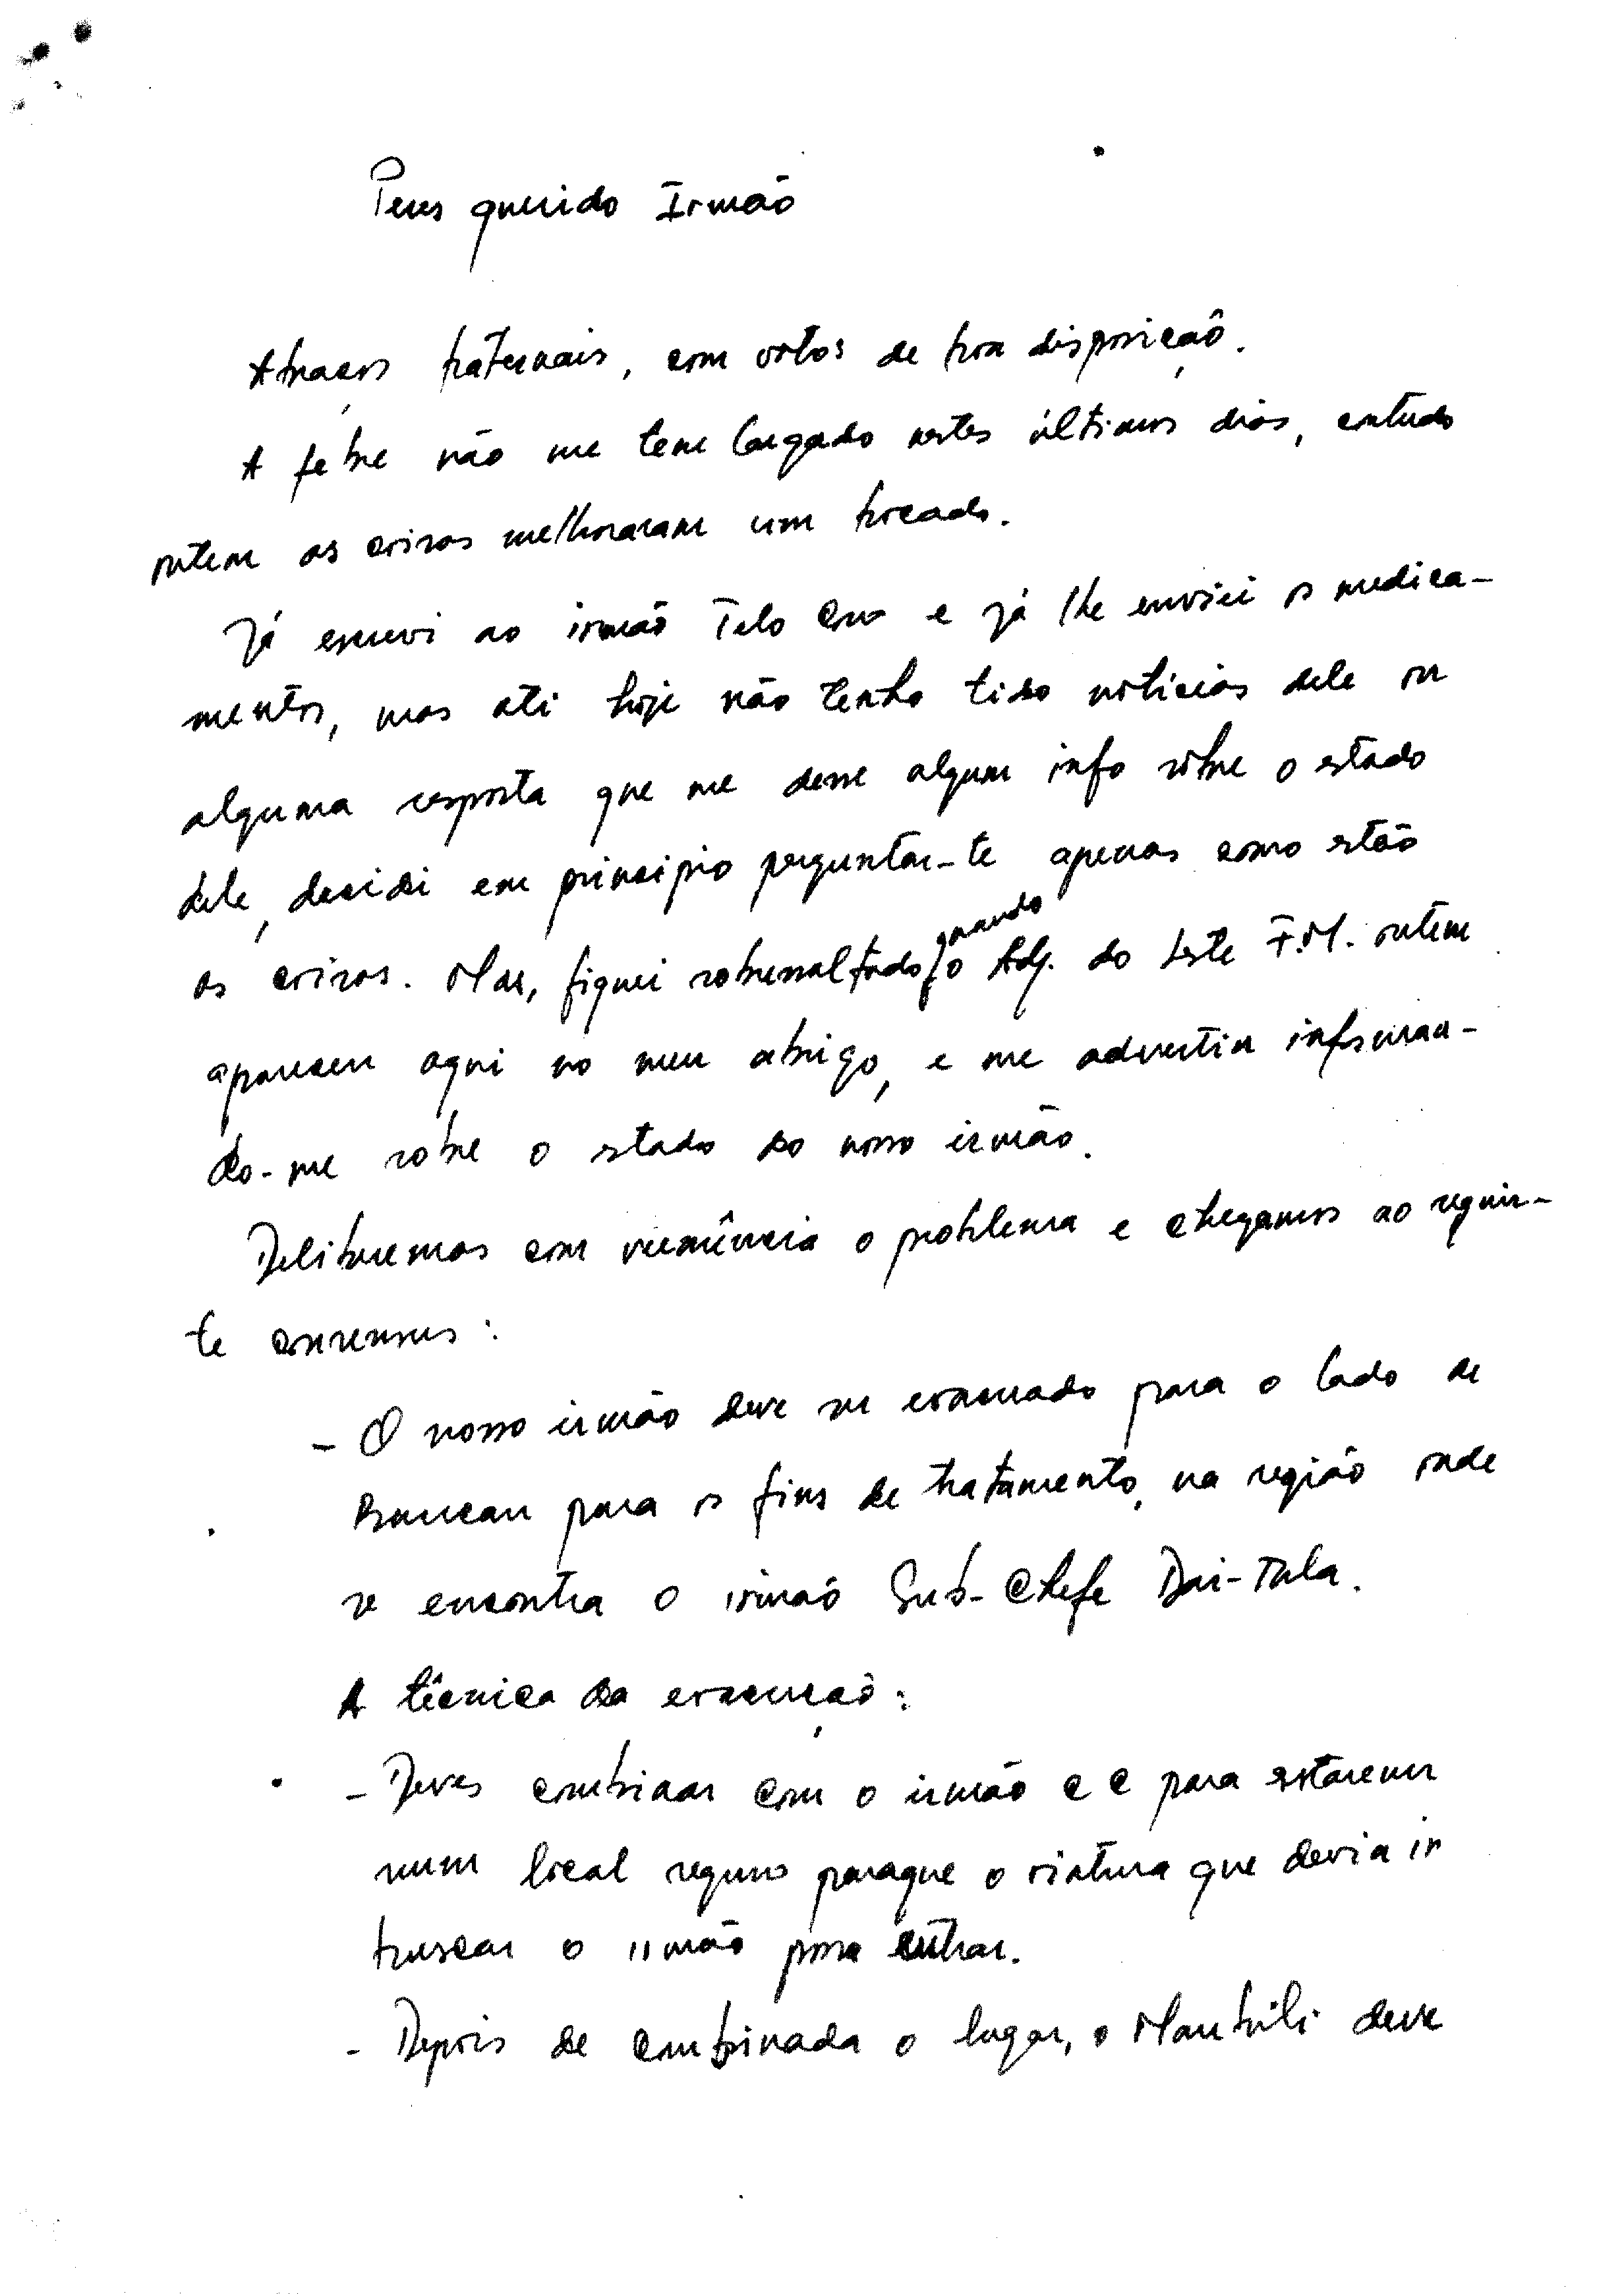 Peres querido Irmão
Abraços fraternais, com votos de boa disposição.
A febre não me tem largado nestes últimos dias, contudo
ontem as coisas melhoraram um bocado.
Já escrevi ao irmão Telo Cono e já lhe enviei os medica-
mentos, mas até hoje não tenho tido notícias dele ou
alguma resposta que me desse algum info sôbre o estado
dele, decidi em princípio perguntar-te apenas como estão
as coisas. Mas, fiquei sobressaltado, quando o Adj. do Leste F.M. ontem
apareceu aqui no meu abrigo, e me advertiu informan-
do-me sobre o estado do nosso irmão.
Deliberemos com veemência o problema e chegamos ao seguin-
te consensus:
- O nosso irmão deve ser evacuado para o lado de
Baucau para os fins de tratamento, na região onde
se encontra o irmão Sub-Chefe Dai-Tula.
A técnica da evacuação:
- Deves combinar com o irmão C C para estarem
num local seguro paraque o viatura que devia ir
buscar o irmão possa entrar.
- Depois de combinada o lugar, o Maubúli deve